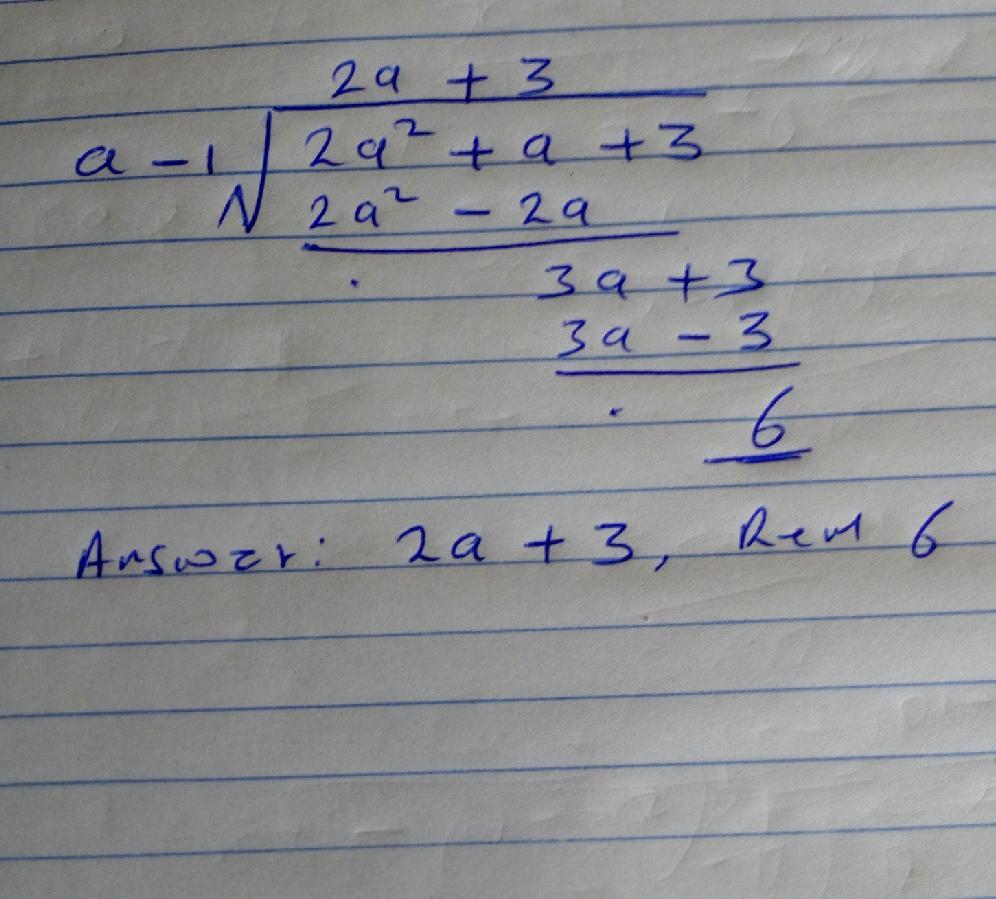 2a + 3
a - 1 √ 2a² + a + 3
2a² - 2a
3a + 3
3a - 3
6
Answer: 2a + 3, Rem 6